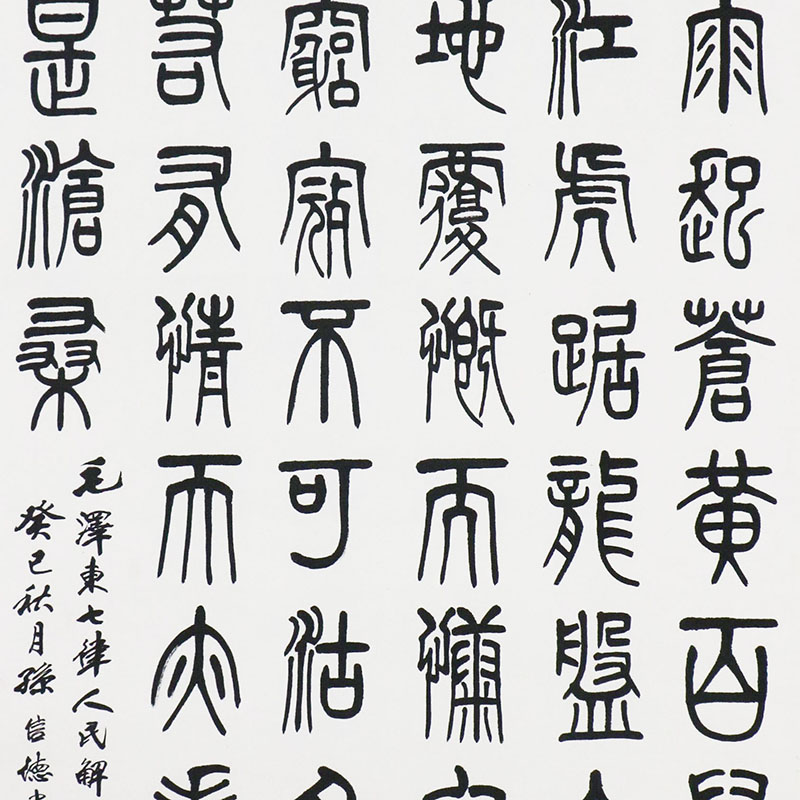 雨起蒼黃百
江虎踞龍盤
地覆慨而慷
窮寇不可沽名
若有情天亦
是滄桑
毛澤東七律人民解
癸巳秋月孫信德